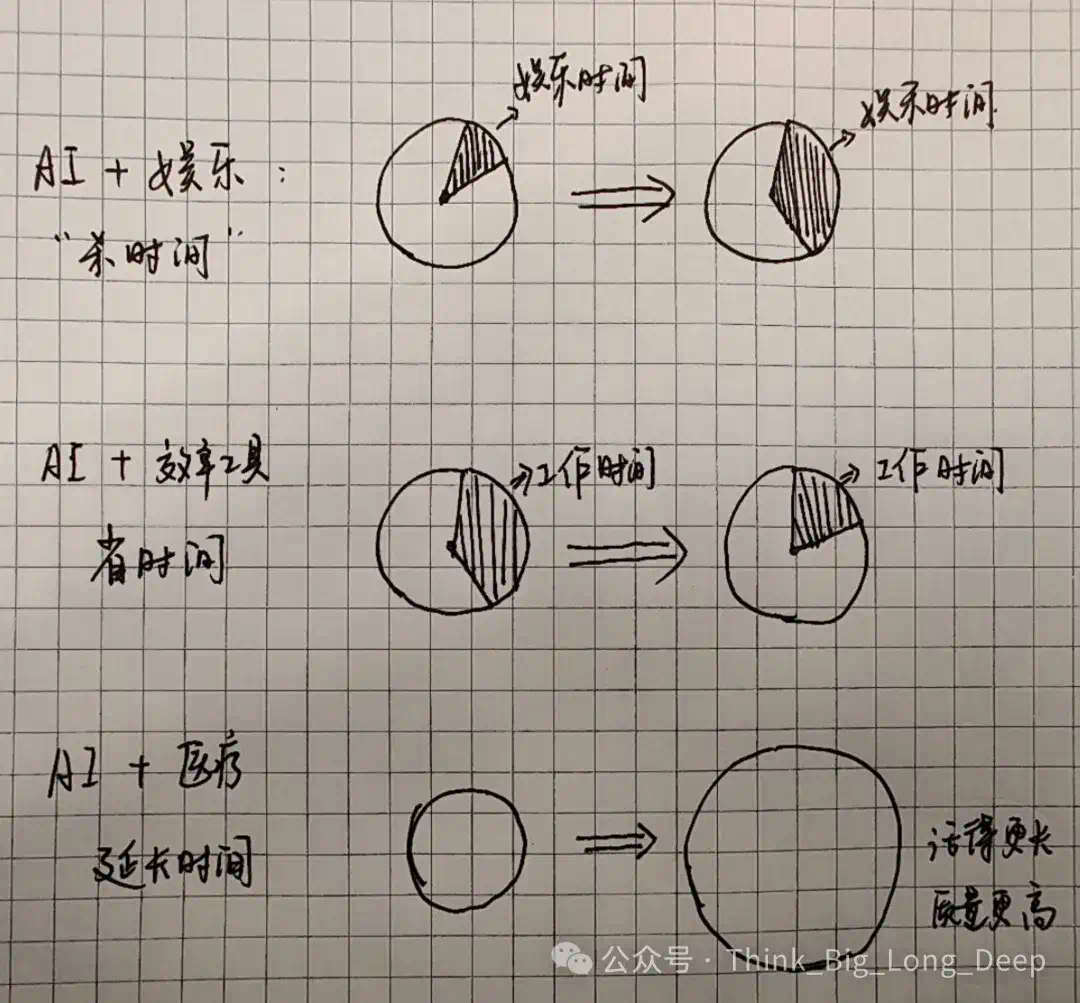 娱乐时间
娱乐时间
AI + 娱乐：
“杀时间”
AI + 效率工具
工作时间
工作时间
省时间
AI + 医疗
延长时间
活得更长
质量更高
公众号 · Think_Big_Long_Deep